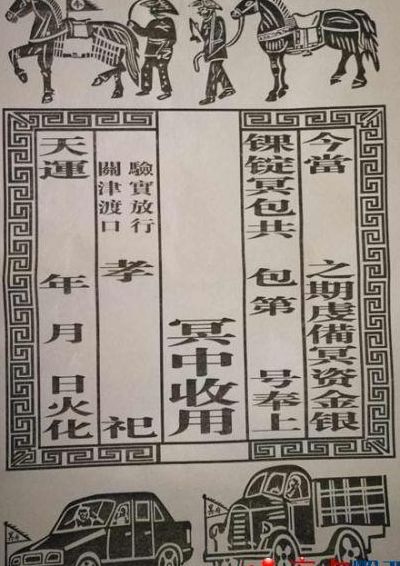 今當 之期虔備冥资金银
錁锭冥包共 包第 号奉上
冥中收用
驗實放行
關津渡口
孝 祀
天運 年 月 日火化